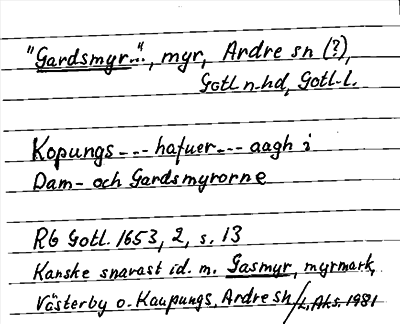 "Gardsmyr...", myr, Ardre sn (?),
Gotl n. hd, Gotl. l.
Kopungs --- hafuer --- aagh i
Dam- och Gardsmyrorne
RG Gotl. 1653, 2, s. 13
Kanske snarast id. m. Gasmyr, myrmark,
Västerby o. Kaupungs, Ardre sn / L. Aks. 1981